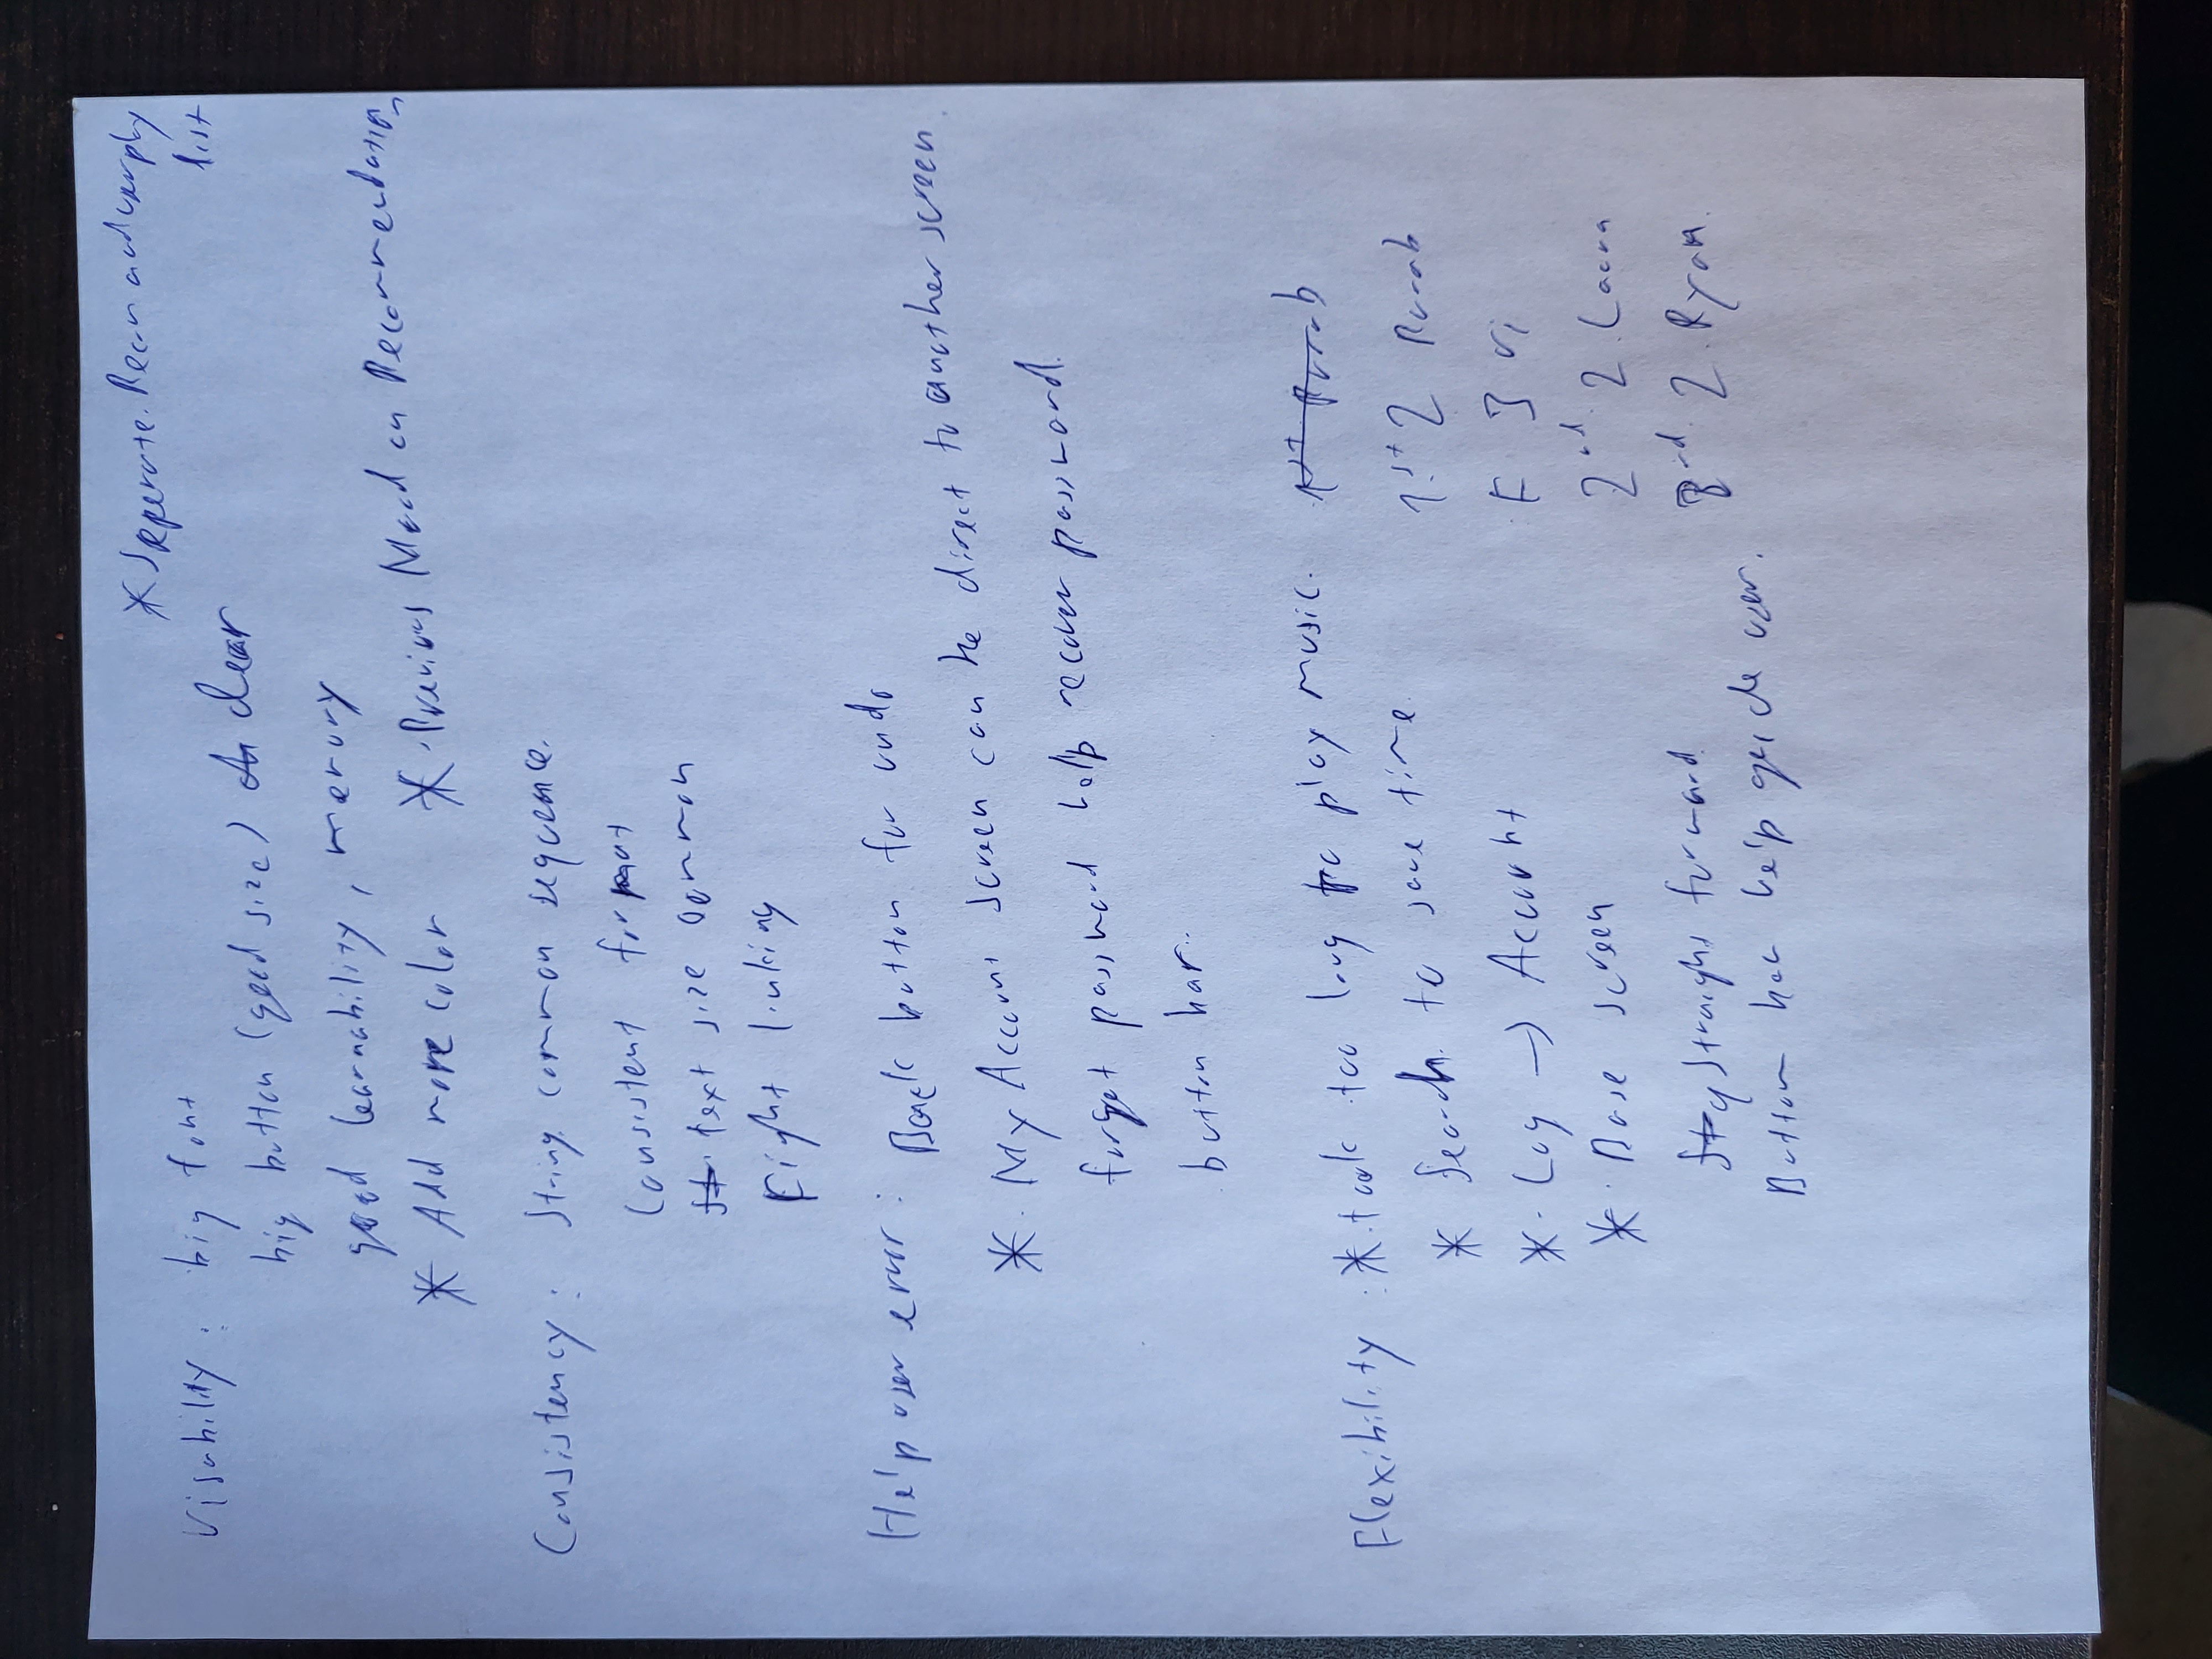 * Seperate Recom and user play
list
Visability: big font
big button (good size) clear
good learnability, memory
* Add more color * Previous Mood on Recommendation
Consistency: String common sequence.
Consistent format
text size common
Right linking
Help user error: Back button for undo
* My Account screen can be direct to another screen
forget password help recover password.
button bar.
Flexibility: * took too long to play music.
* Search to save time 1st 2
* Log → Account F 3 Vi
* Base screen 2nd 2
straight forward 3rd 2 Ryan
Bottom bar help guide user.